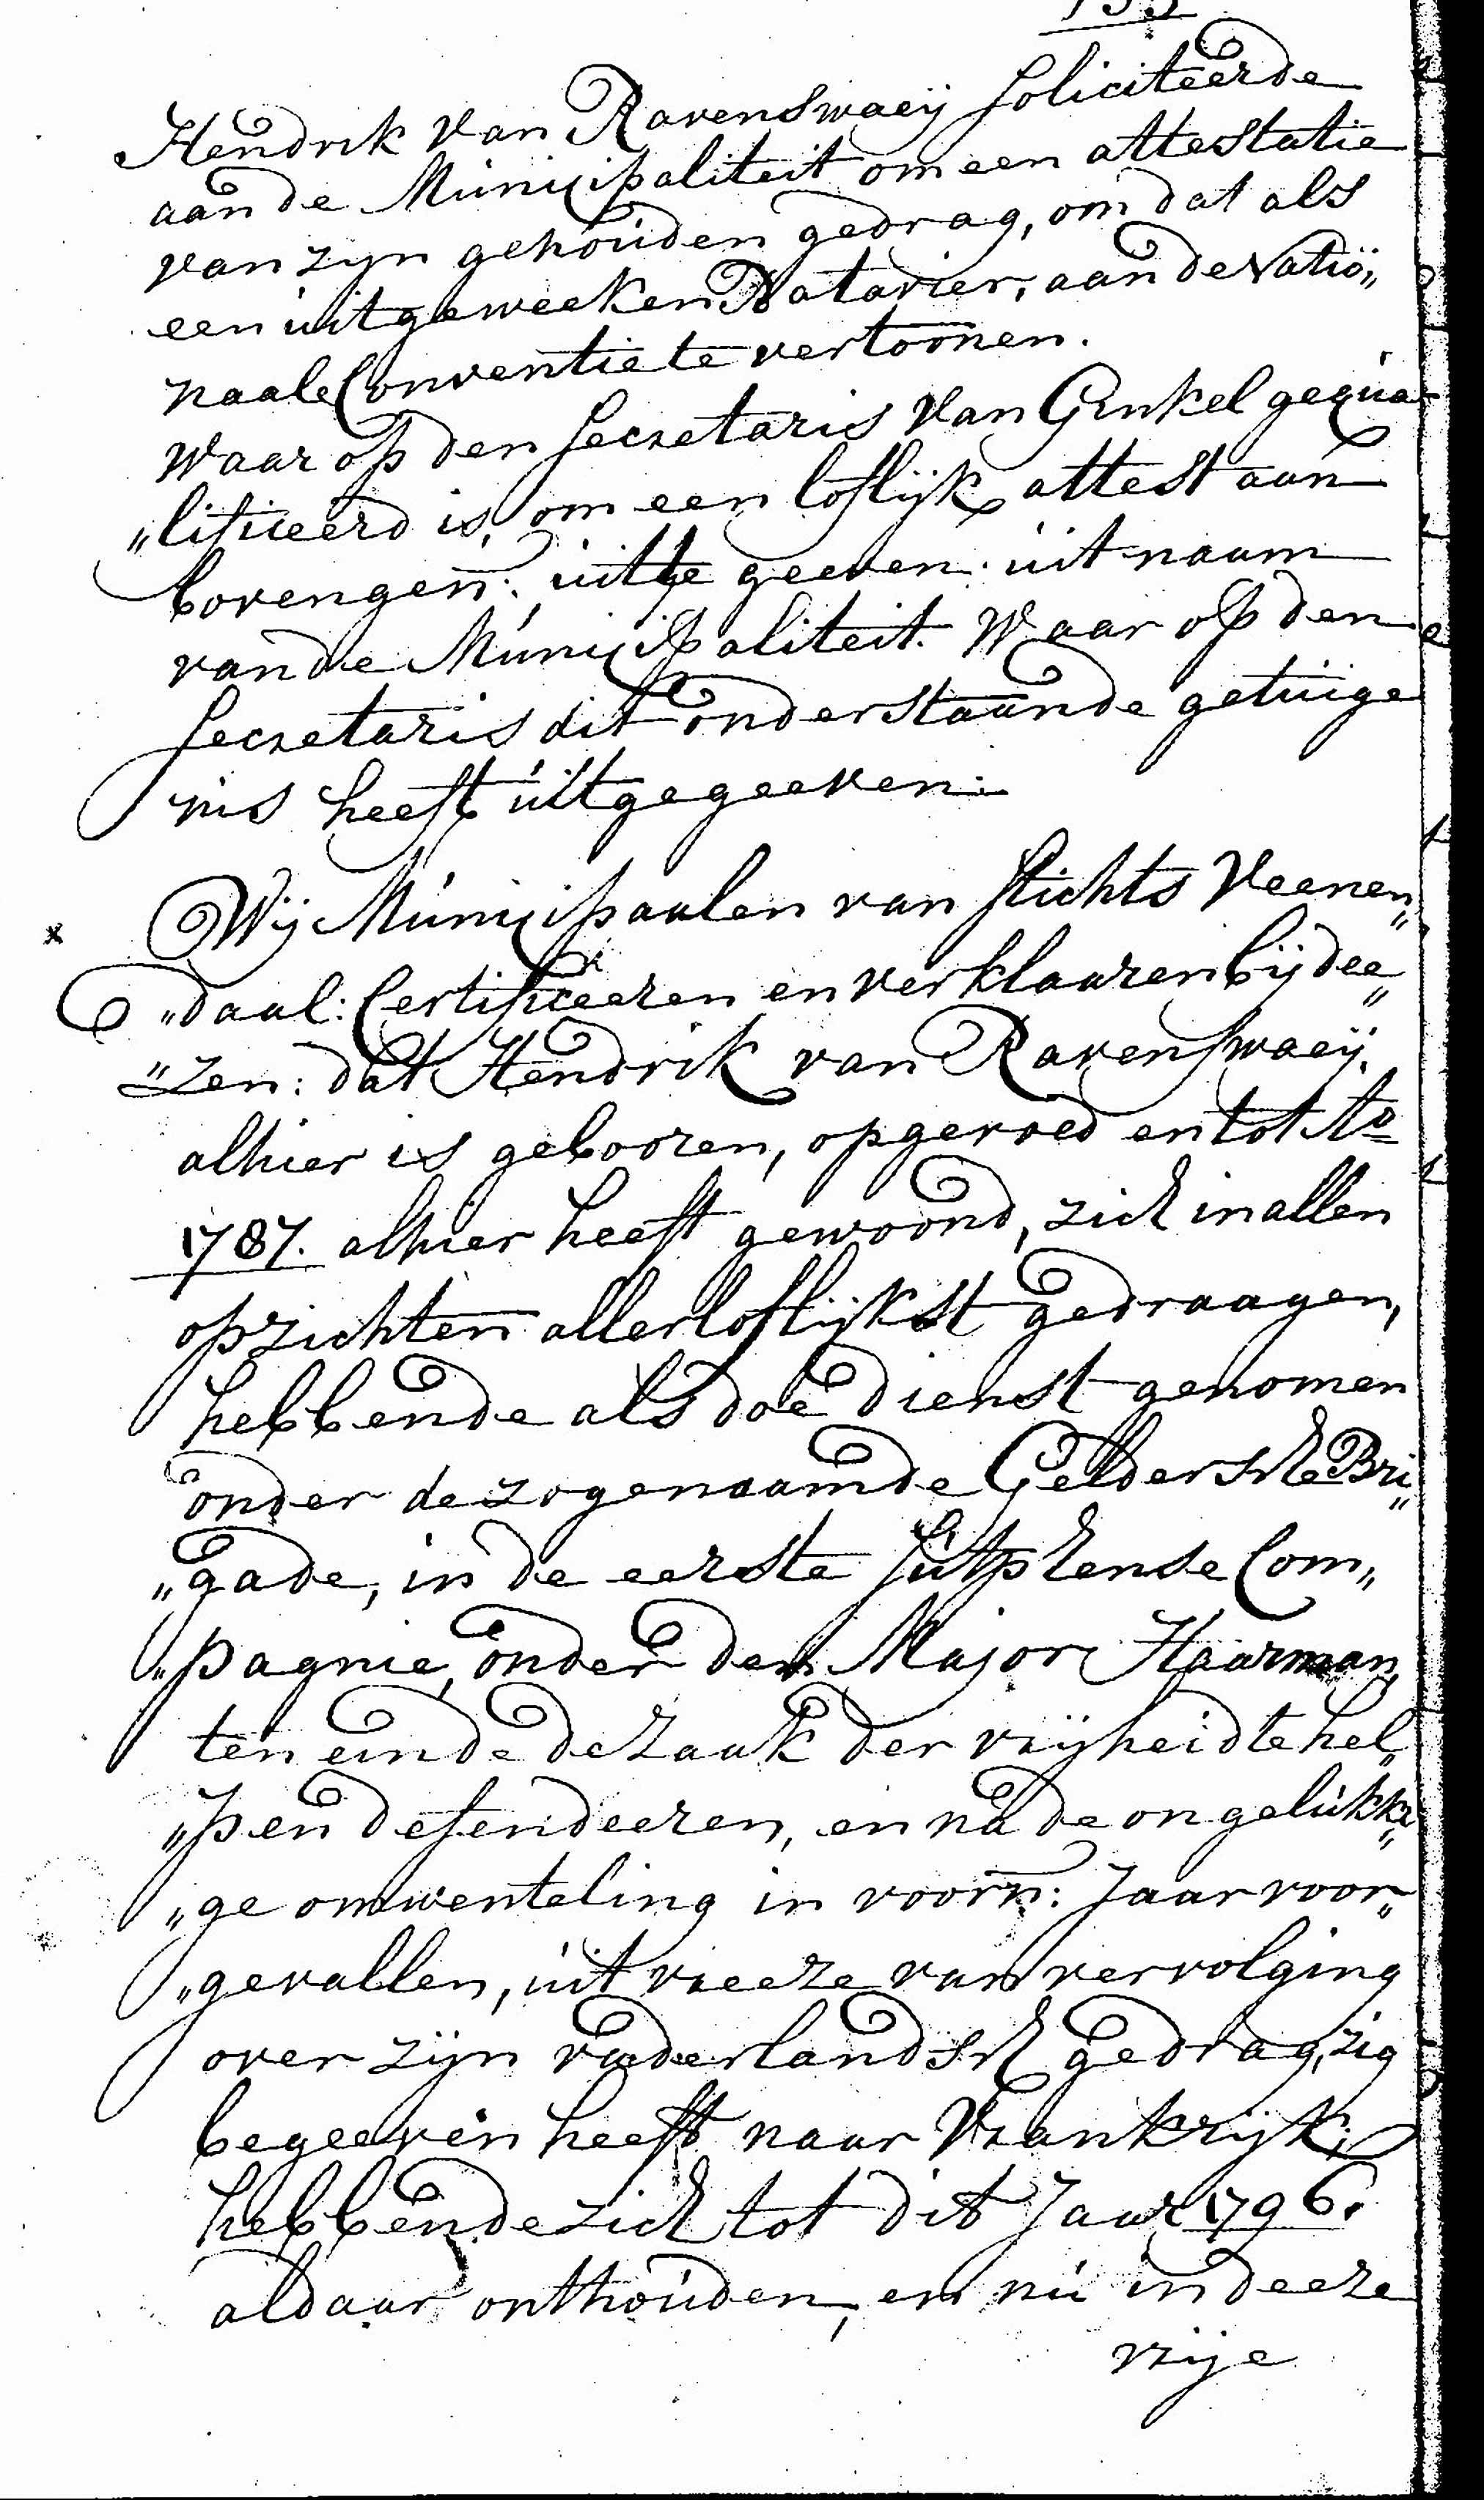 Hendrik van Ravenswaeij soliciteerde
aan de Municipaliteit om een attestatie
van zyn gehouden gedrag, om dat als
een uitgeweeken Batavier, aan de Natio„
naale Conventie te vertoonen.
Waar op den Secretaris van Ginkel gequa„
„lificeerd is, om een loflijk attest aan
bovengen: uit te geeven uit naam
van de Municipaliteit. Waar op den
Secretaris dit onderstaande getuige
nis heeft uitgegeeven:
x Wij Municipaalen van Stichts Veenen„
„daal: Certificeeren en verklaaren bij dee„
„zen: dat Hendrik van Ravenswaeij.
alhier is gebooren, opgevoed en tot Ao
1787. alhier heeft gewoond, zich in allen
opzichten allerloflijkst gedraagen,
hebbende als doe dienst genomen
onder de zogenaamde Geldersche Bri„
„gade, in de eerste Sutphense Com„
„pagnie, onder den Major Haarman,
ten einde de zaak der vrijheid te hel„
„pen defendeeren, en na de ongelukki„
„ge omwenteling in voorn: Jaar voor„
„gevallen, uit vreeze van vervolging
over zijn vaderlandsch gedrag, zig
begeeven heeft naar Vrankrijk;
hebbende zich tot dit Jaar 1796.
aldaar onthouden, en nu in deeze
vrije